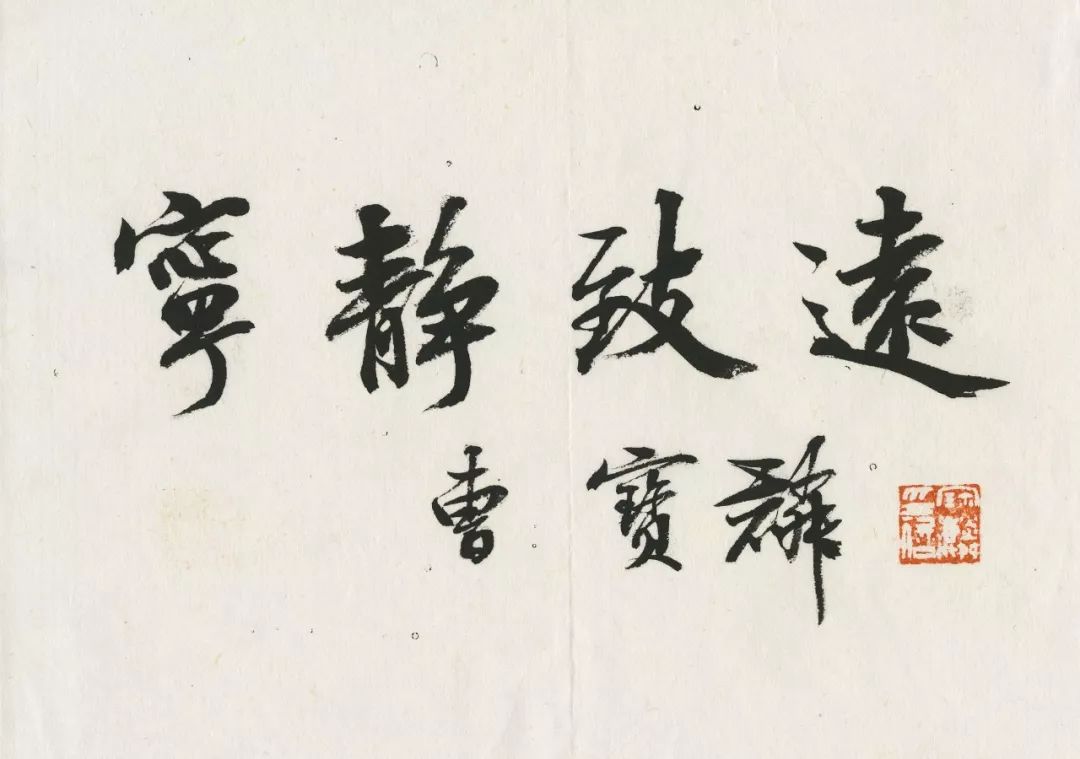 寧静致遠
曹寶麟